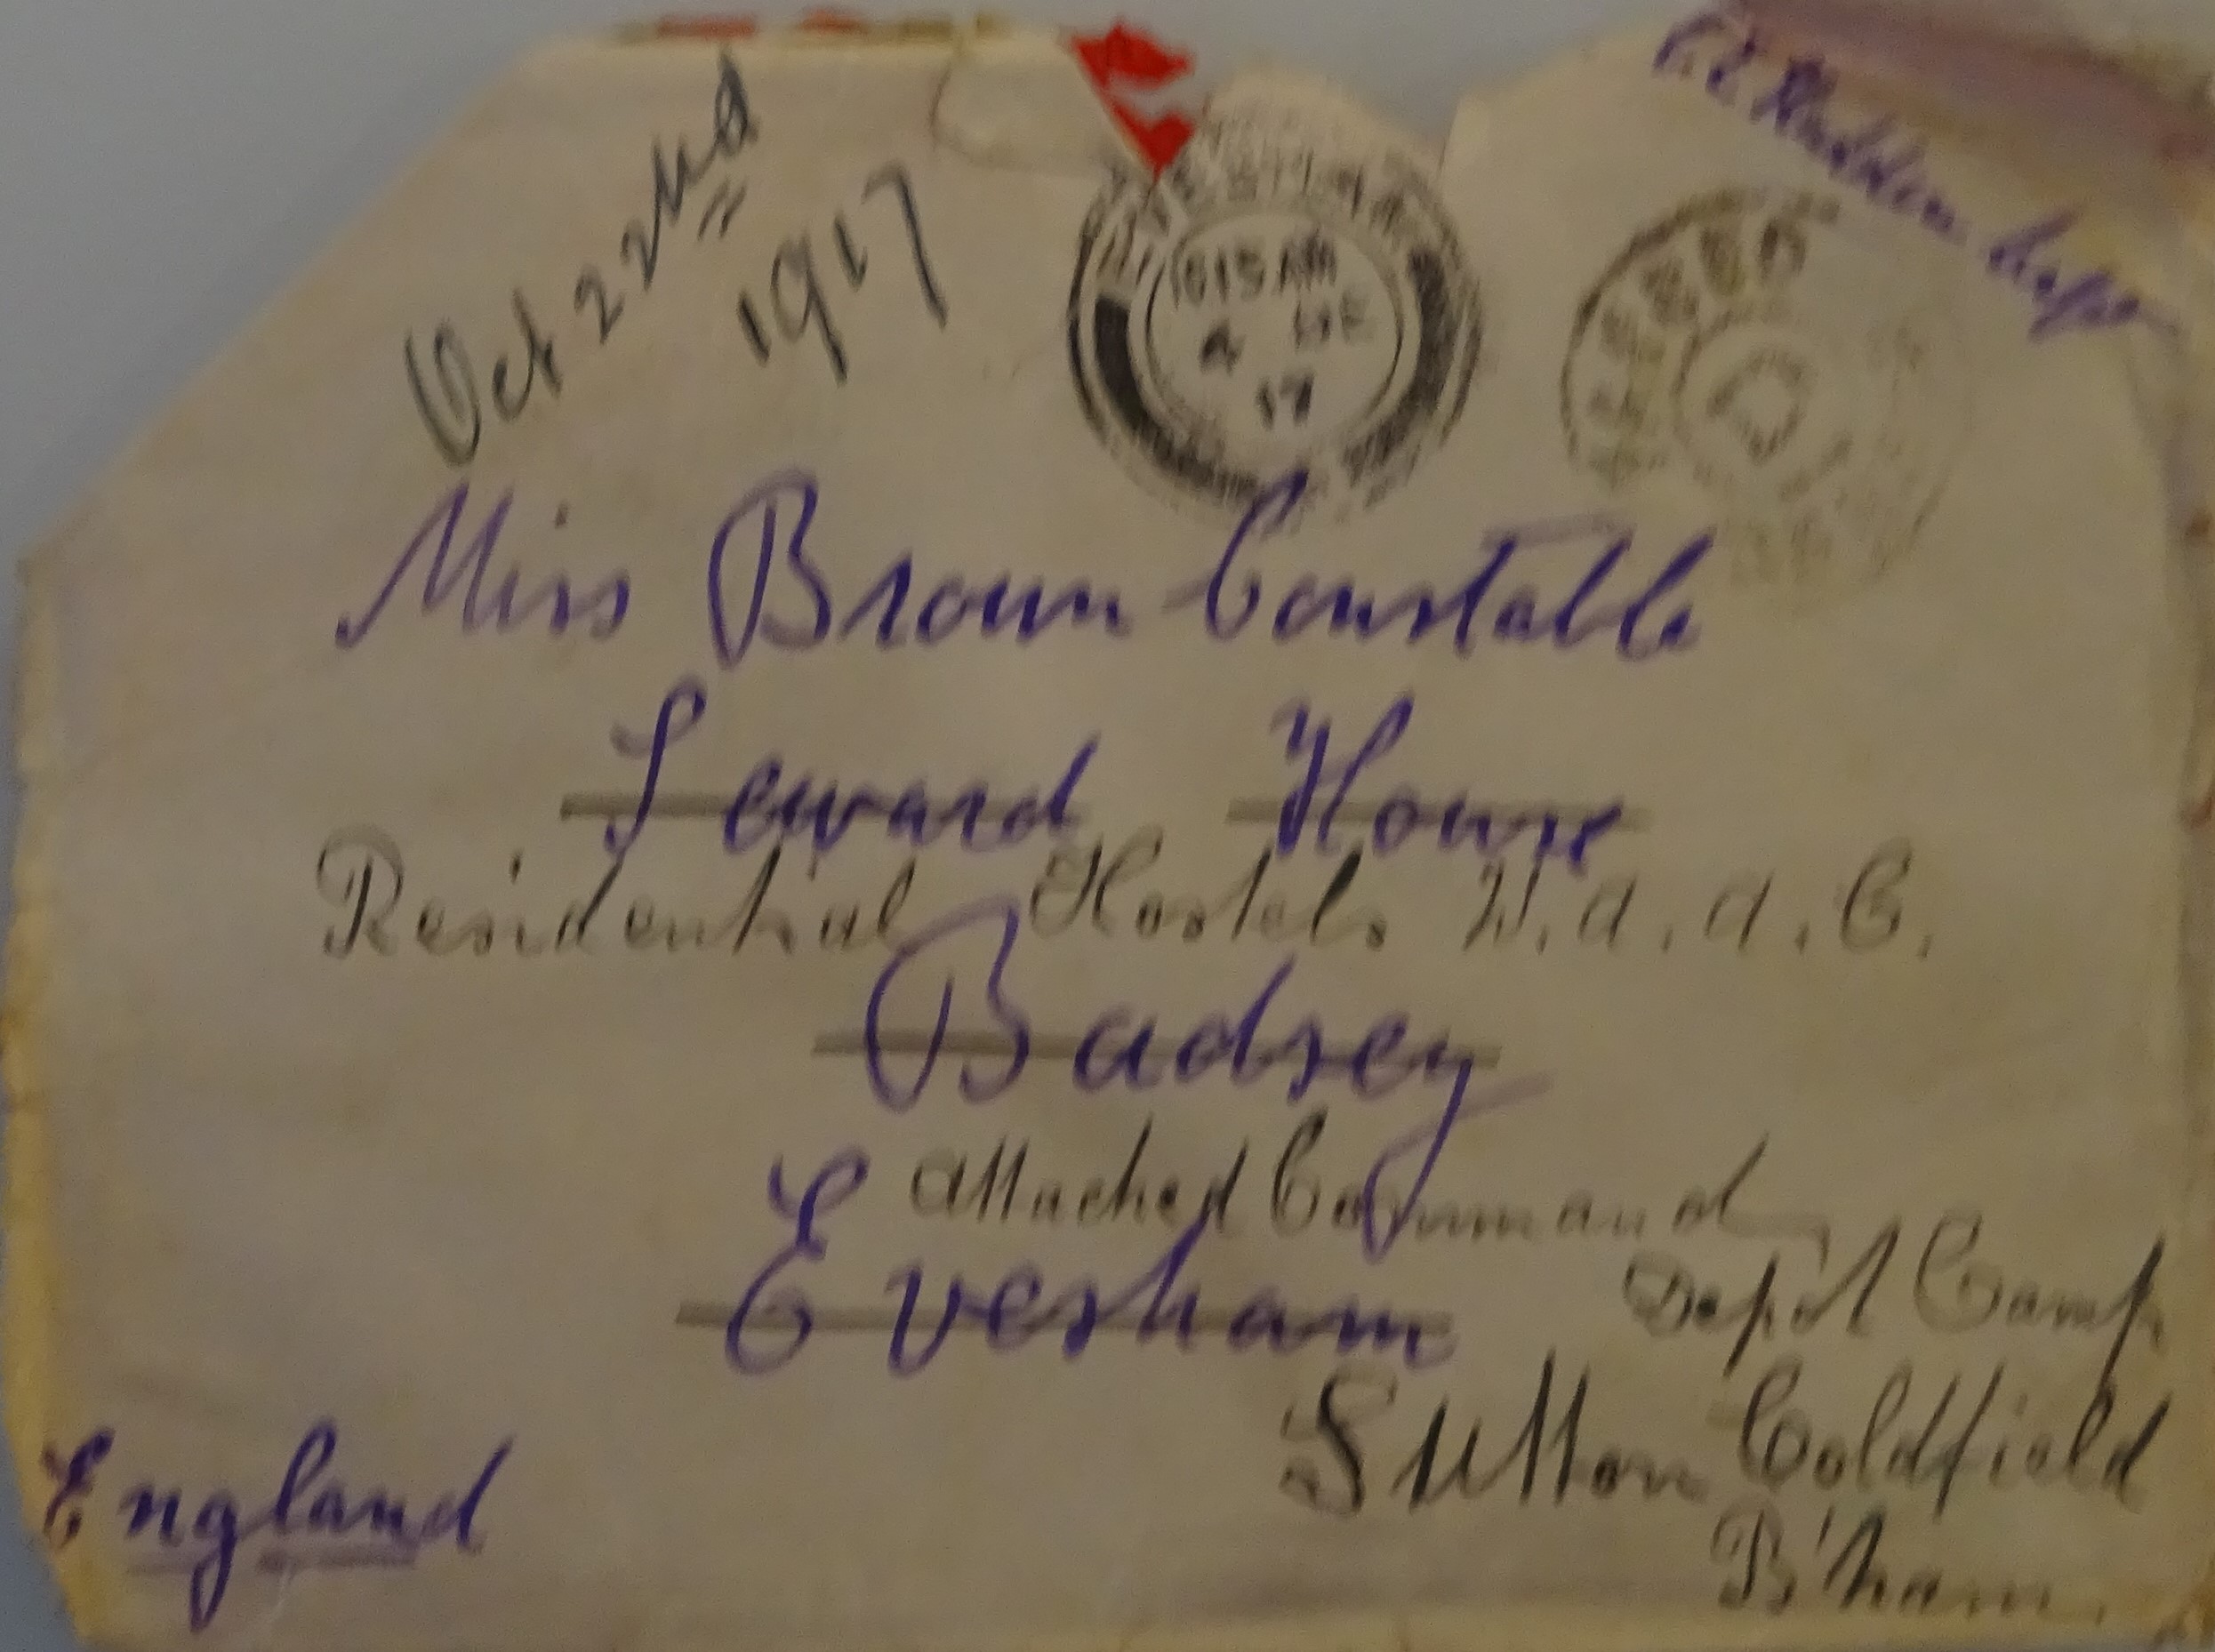 Oct 22nd
1917
10 15 AM
4 DE
17
Miss Brown Constable
Seward House
Residential Hostels W.A.A.C.
Badsey
Attached Command
Evesham
Depot Camp
Sutton Coldfield
B'ham.
England